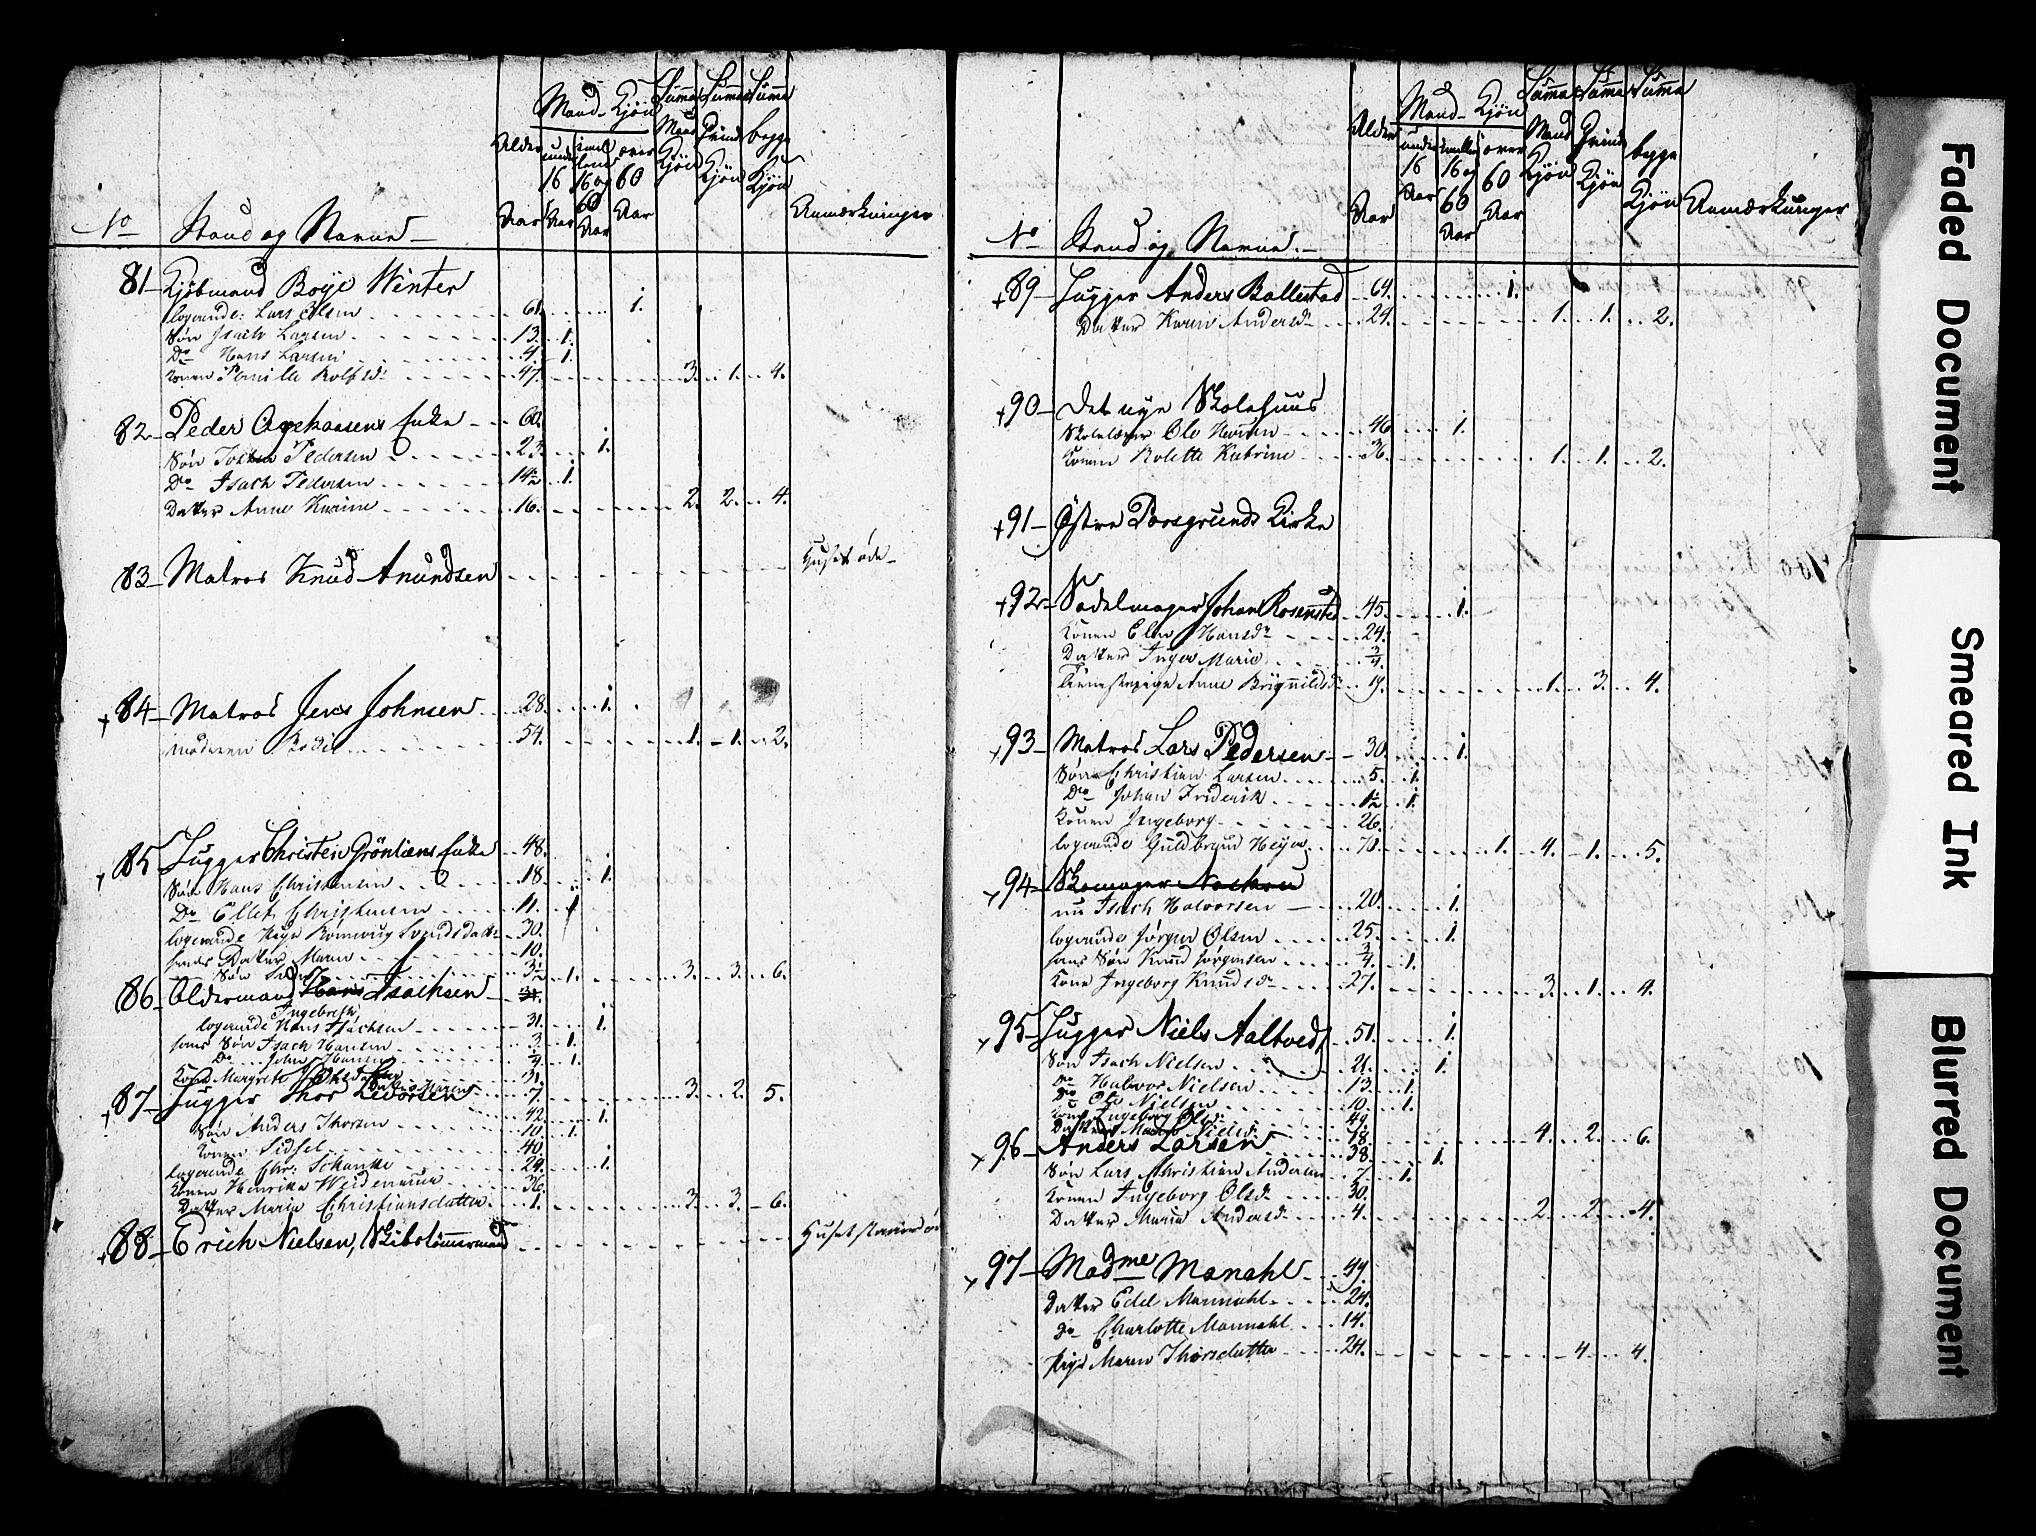 Mand Kjön
Summa Mand Kjön
Summa Qvinde Kjön
Summa begge Kjön
Alder Aar
under 16 Aar
imellem 16 og 60 Aar
over 60 Aar
Anmærkninger
No Stand og Navne
81 Kjöbmand Boye Winter
logerende: Lars Olsen 61. 1.
Sön Isach Larsen 13. 1.
Do Hans Larsen 4. 1.
Konen Pernille Rolfsd 47. 3. 1. 4.
82 Peder Aagehansens Enke 60.
Sön Pedersen 23. 1.
Do Isach Pedersen 14½ 1.
Datter Anne Karine 16. 2. 2. 4.
83 Matros Knud Anundsen Huset øde
+ 84 Matros Jens Johnsen 28. 1.
Moderen Bodil 54. 1. 1. 2.
+ 85 Lugger Christen Gröntvens Enke 48.
Sön Hans Christensen 18. 1.
Do Ellef Christensen 11. 1.
logerende Svendsdatter 30.
hendes Datter Maren 10.
Sön 3½ 1. 3. 3. 6.
86 Oldermand Hans Isachsen 31.
Ingebreth
logerende Hans Isachsen 31. 1.
hans Sön Isach Hansen 3. 1.
Do John Hansen ¼ 1.
Kone Margrete 31.
Datter Maren 7. 3. 2. 5.
+ 87 Lugger Thor Levorsen 42. 1.
Sön Anders Thorsen 10. 1.
Konen Sidsel 40.
logerende Chr: Schanke 29. 1.
Konen Henrika Weidemann 36.
Datter Maria Christiansdatter 1. 3. 3. 6.
+ 88 Erich Nielsen, Skibstömmermand Huset
Mand Kjön
Summa Mand Kjön
Summa Qvinde Kjön
Summa begge Kjön
Alder Aar
under 16 Aar
imellem 16 og 60 Aar
over 60 Aar
Anmærkninger
No Stand og Navne
+ 89 Lugger Anders Ballestad 64. 1.
Datter Karen Andersd 24. 1. 1. 2.
+ 90 Det nye Skolehuus
Skolelærer Ole Hansen 46 1.
Konen Rolette Kathrine 36. 1. 1. 2.
+ 91 Østre Porsgrunds Kirke
+ 92 Sadelmager Johan Rosensted 45. 1.
Konen Elen Hansdr 24.
Datter Inger Marie ¾.
Tienestepige Anne Brÿnnildsdr 19. 1. 3. 4.
+ 93 Matros Lars Pedersen 30. 1.
Sön Christian Larsen 5. 1.
Do Johan Friderich 1½ 1.
Konen Ingeborg 26.
logerende Guldbrand Heyer 70. 1. 4. 1. 5.
+ 94 Skomager
nu Isach Halvorsen 20. 1.
logerende Jörgen Olsen 25. 1.
hans Sön Knud Jörgensen ¾. 1.
Kone Ingeborg Knudsdr 27. 3. 1. 4.
+ 95 Lugger Niels Aaltvedt 51. 1.
Sön Isach Nielsen 21. 1.
Do Halvor Nielsen 13. 1.
Do Ole Nielsen 10. 1.
Konen Ingeborg Olsd 49.
Datter Nielsd 18. 4. 2. 6.
+ 96 Anders Larsen 38. 1.
Sön Lars Christian Andersen 7. 1.
Konen Ingeborg Olsdr 30.
Datter Maria Andersd 4. 2. 2. 4.
+ 97 Madme Monahl 49.
Datter Edel Mannahl 24.
Do Charlotte Mannahl 14.
Pige Maren Thorsdatter 24. 4. 4.
Faded Document
Smeared Ink
Blurred Document